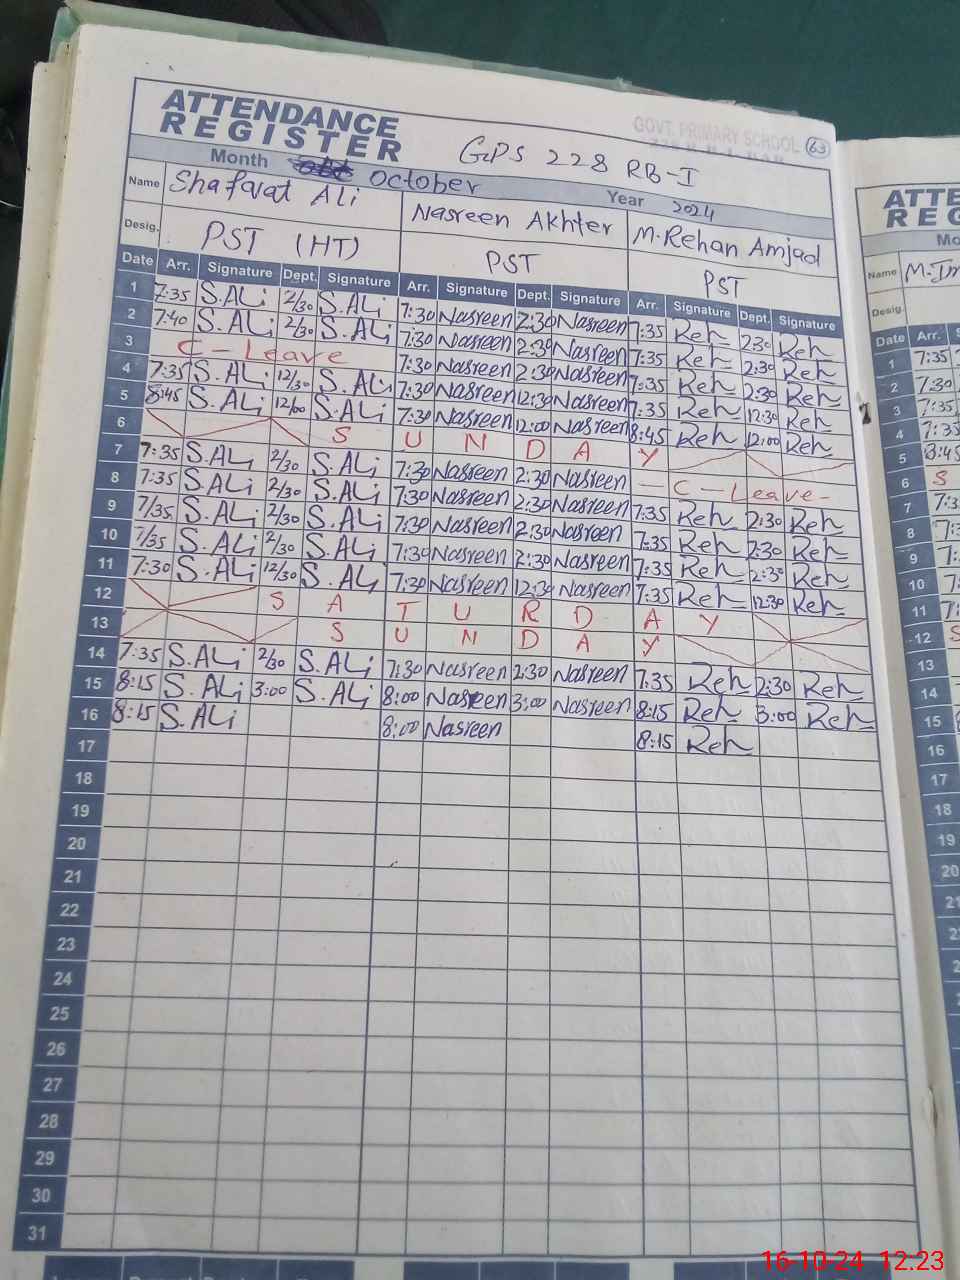 ATTENDANCE
REGISTER
GPS 228 RB-I
GOVT. PRIMARY SCHOOL
63
Month October Year 2024
Name Shafavat Ali Nasreen Akhter M.Rehan Amjad
Desig. PST (HT) PST PST
Date Arr. Signature Dept. Signature Arr. Signature Dept. Signature Arr. Signature Dept. Signature
1 7:35 S.ALi 2/30 S.ALi 7:30 Nasreen 2:30 Nasreen 7:35 Reh 2:30 Reh
2 7:40 S.ALi 2/30 S.ALi 7:30 Nasreen 2:30 Nasreen 7:35 Reh 2:30 Reh
3 C-Leave 7:30 Nasreen 2:30 Nasreen 7:35 Reh 2:30 Reh
4 7:35 S.ALi 12/30 S.ALi 7:30 Nasreen 12:30 Nasreen 7:35 Reh 12:30 Reh
5 8:45 S.ALi 12/00 S.ALi 7:30 Nasreen 12:00 Nasreen 8:45 Reh 12:00 Reh
6 S U N D A Y
7 7:35 S.ALi 2/30 S.ALi 7:30 Nasreen 2:30 Nasreen — C — Leave -
8 7:35 S.ALi 2/30 S.ALi 7:30 Nasreen 2:30 Nasreen 7:35 Reh 2:30 Reh
9 7/35 S.ALi 2/30 S.ALi 7:30 Nasreen 2:30 Nasreen 7:35 Reh 2:30 Reh
10 7/35 S.ALi 2/30 S.ALi 7:30 Nasreen 2:30 Nasreen 7:35 Reh 2:30 Reh
11 7:30 S.ALi 12/30 S.ALi 7:30 Nasreen 12:30 Nasreen 7:35 Reh 12:30 Reh
12 S A T U R D A Y
13 S U N D A Y
14 7:35 S.ALi 2/30 S.ALi 7:30 Nasreen 2:30 Nasreen 7:35 Reh 2:30 Reh
15 8:15 S.ALi 3:00 S.ALi 8:00 Nasreen 3:00 Nasreen 8:15 Reh 3:00 Reh
16 8:15 S.ALi 8:00 Nasreen 8:15 Reh
17
18
19
20
21
22
23
24
25
26
27
28
29
30
31
Name
Desig.
Date Arr.
1 7:35
2 7:30
3 7:35
4 7:35
5 8:45
6 S
7
8
9
10
11
12
13
14
15
16
17
18
19
20
16-10-24 12.23